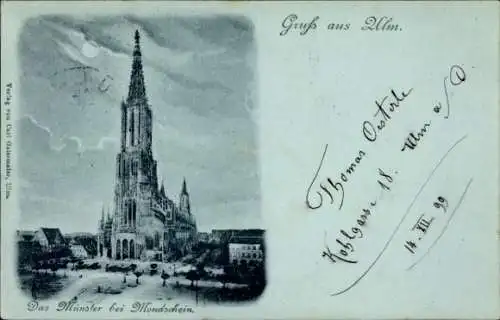 Gruß aus Ulm.
Verlag von Carl
Das Münster bei Mondschein.
Thomas Oesterle
Kohlgasse 18.
Ulm a/D
14. III. 99